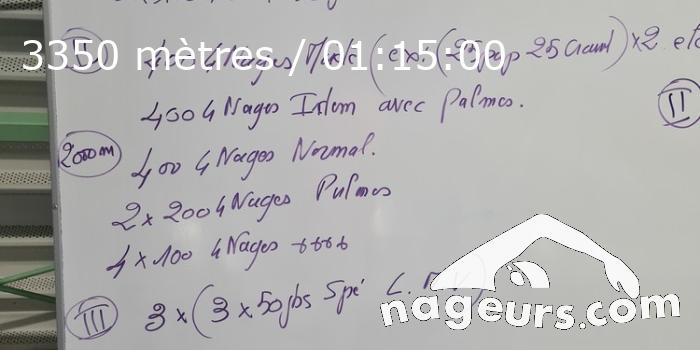 3350 mètres / 01:15:00
400 4 Nages (ex: (25 pap 25 Crawl) x2 etc
400 4 Nages Idem avec Palmes.
II
2000m
400 4 Nages Normal.
2 x 200 4 Nages Palmes
4 x 100 4 Nages ++++
III 3 x (3 x 50 jbs Spé
nageurs.com